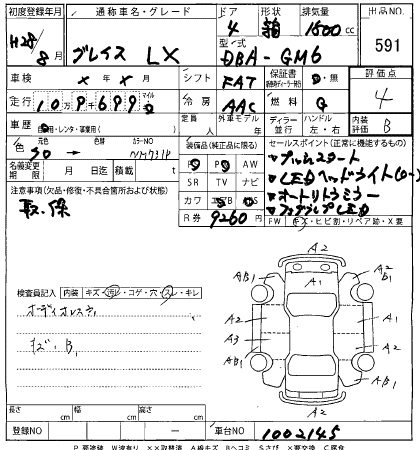 初度登録年月 通称車名・グレード ドア 形状 排気量 出品NO
H28/8月 グレイス LX 4 箱 1500cc 591
型式 DBA-GM6
車検 × 年 × 月 シフト FAT 保証書 有・無 評価点
走行 109699 マイル 冷房 AAC 燃料 G 4
車歴 自家用・レンタ・事業用( ) 定員 人 外車モデル ディーラー 並行 ハンドル 左・右 内装 B
色 元色 色替 カラーNO NH731P
装備品(純正品に限る) セールスポイント(正常に機能するもの)
PS PW AW
・プッシュスタート
名義変更期限 月 日 積載 t SR TV ナビ
・LEDヘッドライト(ロー)
注意事項(欠品・修復・不具合箇所および状態) カワ エアB ABS
・オートリトラミラー
取、保 R券 9260円
・フォグランプLED
FW キズ・ヒビ割・リペア跡・X要
検査員記入 内装 キズ・汚レ・コゲ・穴・スレ・キレ
オーディオレス
キズ・B1
A2
A1
AB1
A2
B1
A2
A3
AB1
A2
A1
AB1
A2
長さ cm 幅 cm 高さ cm
登録NO ー 車台NO 1002145
P 要塗装 W波有り ××取替済 A線キズ Bヘコミ Sさび ×要交換 C腐食